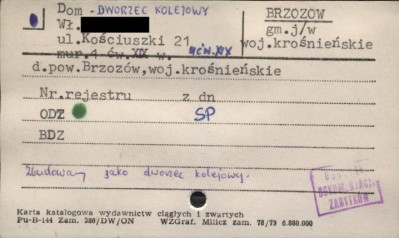 Dom - DWORZEC KOLEJOWY BRZOZÓW
Wł. gm.j/w
ul.Kościuszki 21 woj.krośnieńskie
mur. 4 ćw.XIX w. 4 ĆW. XIX
d.pow.Brzozów,woj.krośnieńskie
Nr.rejestru z dn
ODZ SP
BDZ
Zbudowany jako dworzec kolejowy.
ZABYTKÓW
Karta katalogowa wydawnictw ciągłych i zwartych
Pu-B-144 Zam. 286/DW/ON WZGraf. Milicz zam. 78/73 6.880.000